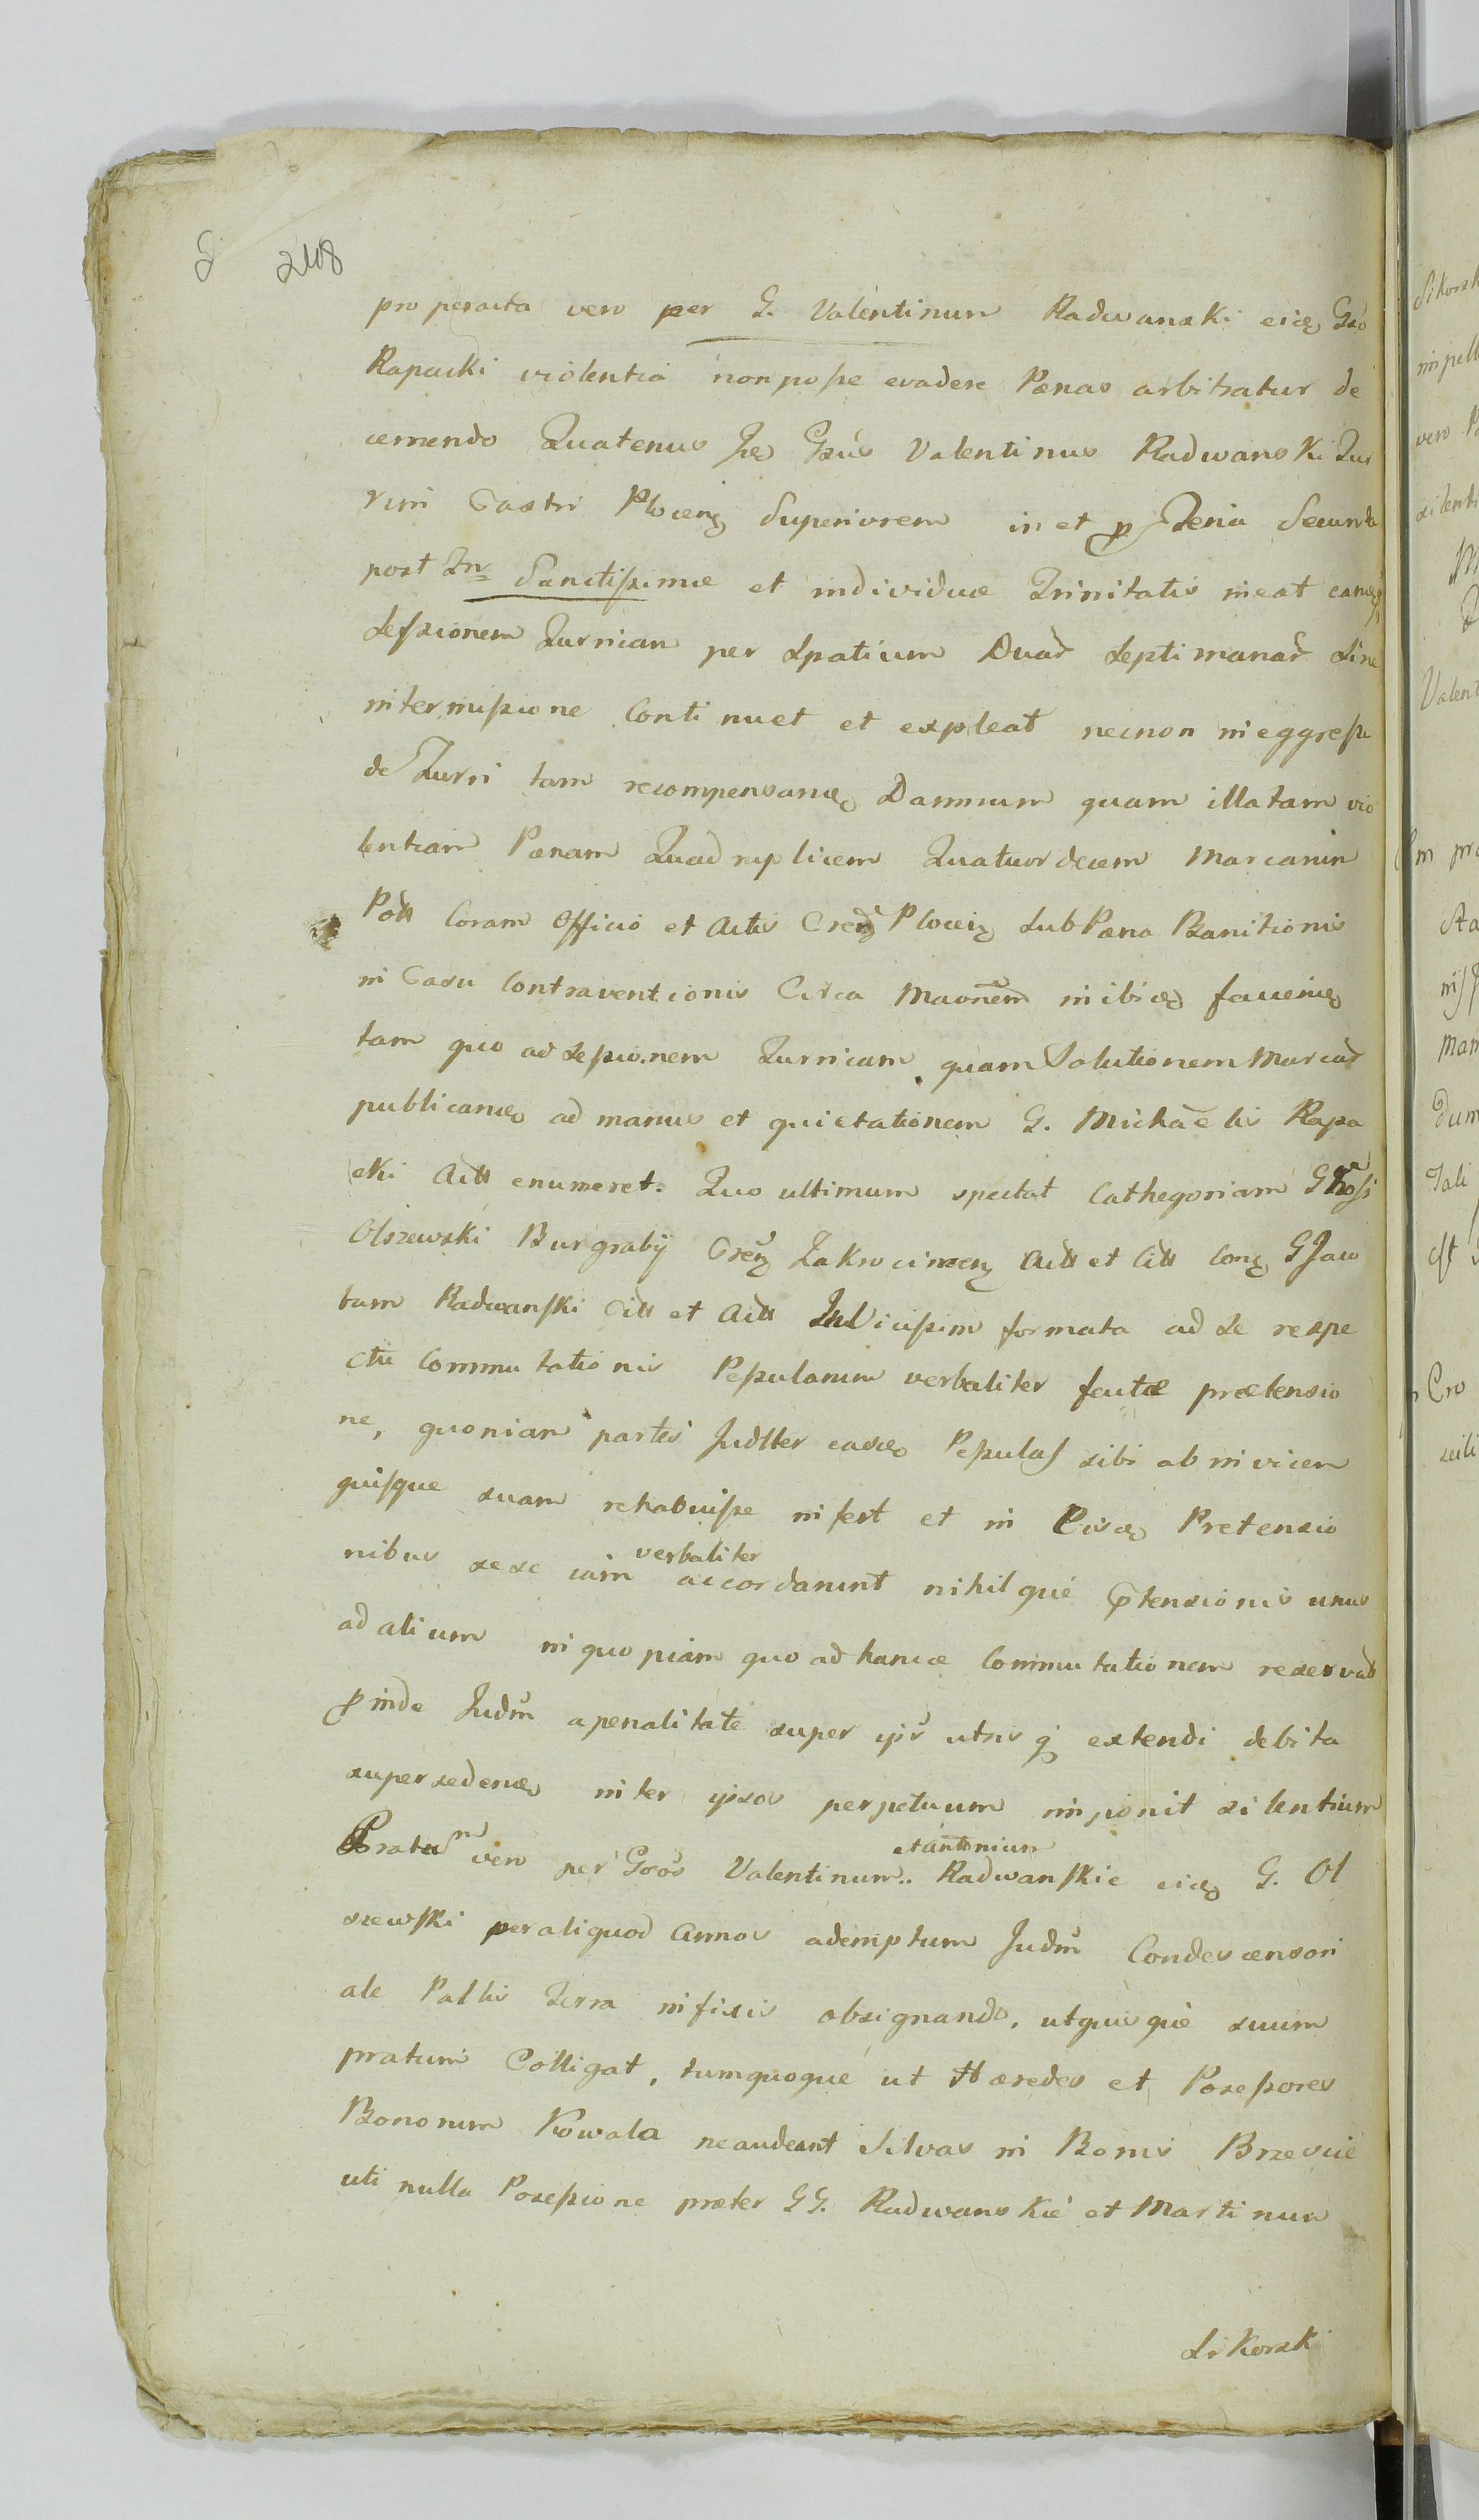 2108
pro peracta vero per G. Valentinum Radwanski eidq Gso
Rapacki violentia non posse evadere Pænas arbitratur de
cernendo Quatenus Gsus Valentinus Radwanski Tur
rim Castri Plocenq Superiorem in et Feria Secunda
post Sanctissimæ et individuæ Trinitatis ineat eanq
Sessionem Turrian per Spatium Duar Septimanar Sine
intermissione Continuet et expleat necnon in eggressu
de Turri tam recompensanq Damnum quam illatam vio
lentiam Pænam Quadruplicem Quatuordecem Marcarum
Poll Coram Officio et Actis Plocenq Sub Pæna Banitionis
in Casu Contraventionis Circa Maonem in ibidq faciendq
tam quo ad Sessionem Turricam quam Solutionem Marcar
publicanq ad manus et quietationem G. Michaelis Rapa
cki Actt enumeret. Quo ultimum spectat Cathegoriam
Olszewski Burgrabij Zakrocimenq Actt et Citt Conq G Jaco
bum Radwanski Citt et Actt Invicissim formata ad se respe
ctu Commutationis Pessularum verbaliter factæ prætensio
ne, quoniam partes Judllter easdq Pessulas sibi ab invicem
quisque suam rehabuisse infert et in Eisdq Pretensio
nibus sese iam accordarunt nihilque ptensionis unus
verbaliter
ad alium in quopiam quo ad hancce Commutationem reservat
pinde Judm a penalitate super ipis utrisq extendi debita
supersedendq inter ipsos perpetuum imponit silentium
Pratum vero per Gsos Valentinum .. Radwanskie eidq G. Ol
et Antonium
szewski per aliquod Annos ademptum Judm Condescensori
ale Pallis Terra infixis obsignando, ut quisque suum
pratum Colligat, tumquoque ut Hæredes et Possessores
Bonorum Kowala ne audeant Silvas in Bonis Brzescie
uti nulla Possessione præter GG. Radwanskie et Martinum
Sikorsk